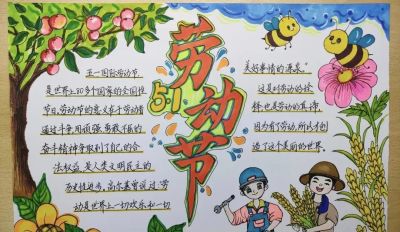 劳动节
5·1
五一国际劳动节
是世界上80多个国家的全国性
节日,劳动节的意义在于劳动者
通过斗争用顽强、英勇不屈的
奋斗精神争取到了自己的合
法权益,是人类文明民主的
历史性进步,高尔基曾说过"劳
动是世界上一切欢乐和一切
美好事情的源泉"
这是对劳动的诠
释也是劳动的真谛,
因为有了劳动,所以才创
造了这个美丽的世界.